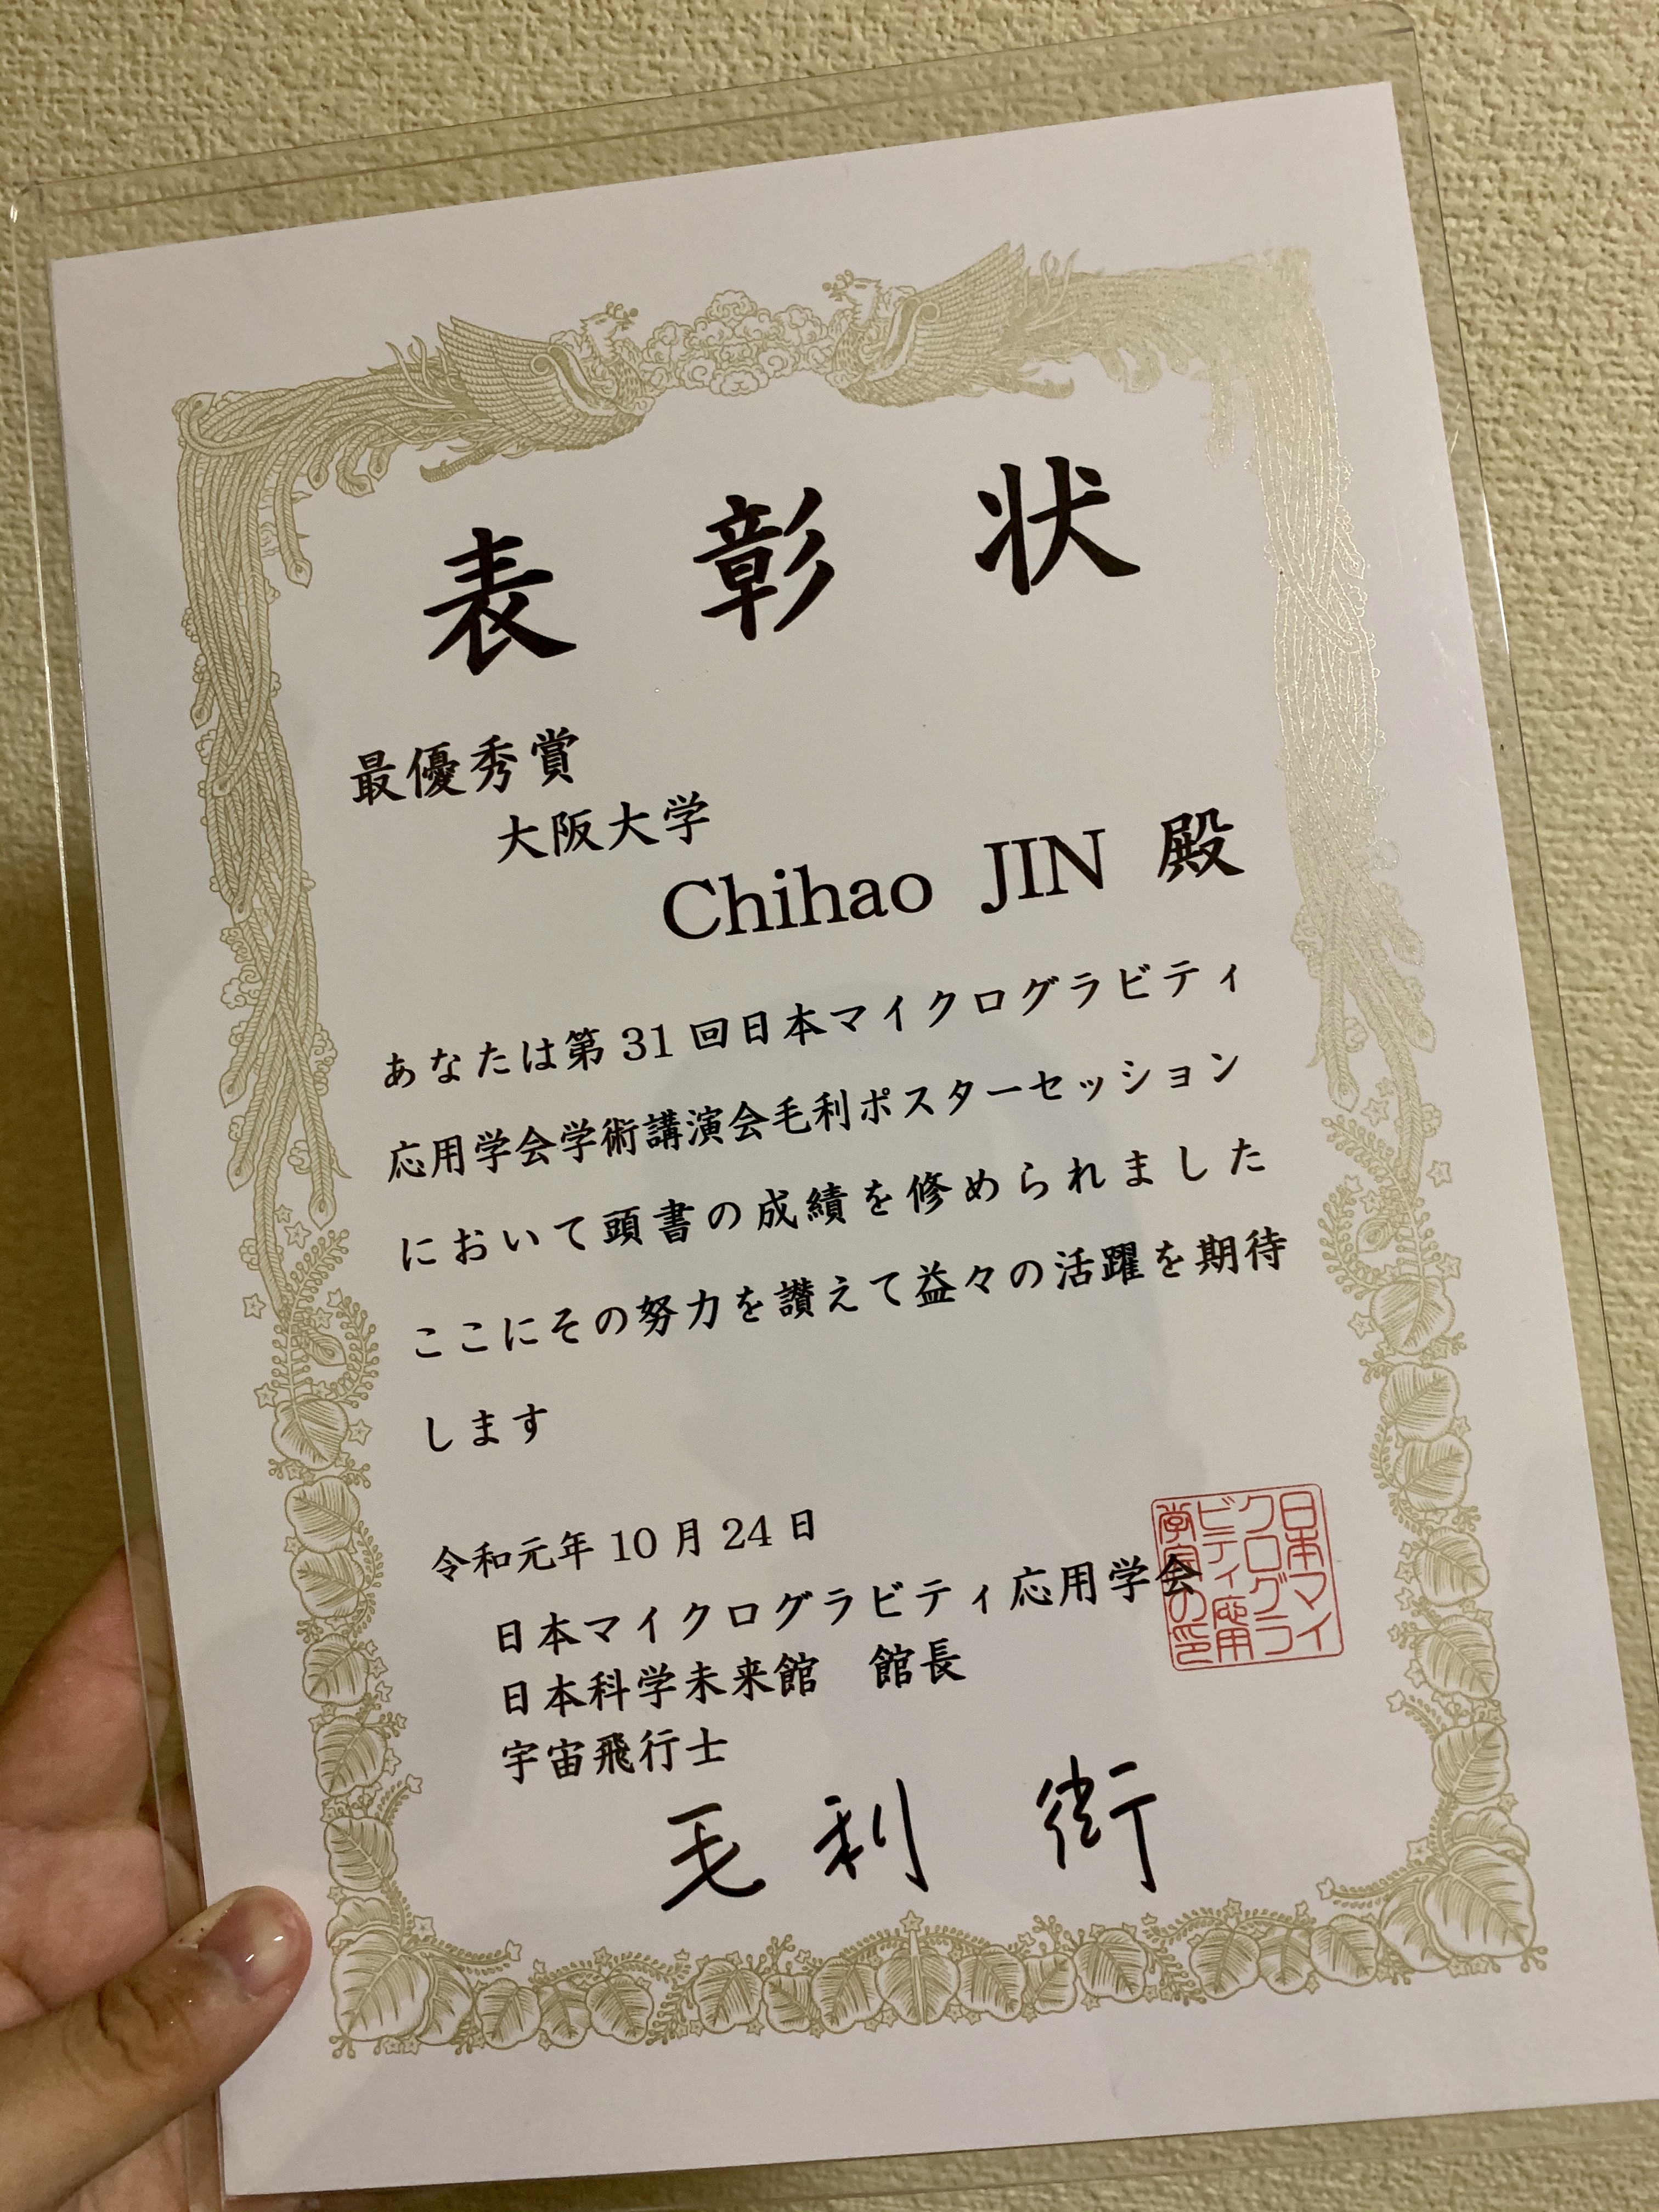 表彰状
最優秀賞
大阪大学
Chihao JIN 殿
あなたは第31回日本マイクログラビティ
応用学会学術講演会毛利ポスターセッション
において頭書の成績を修められました
ここにその努力を讃えて益々の活躍を期待
します
令和元年10月24日
日本マイクログラビティ応用学会
日本科学未来館 館長
宇宙飛行士
毛利 衛
日本マイ
クログラ
ビティ応用
学会の印